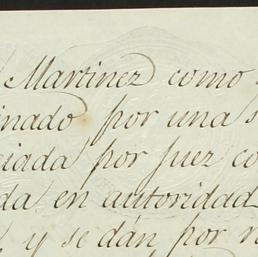 Martinez como
inado por una s
ciada por juez co
da en autoridad
, y se dán por r